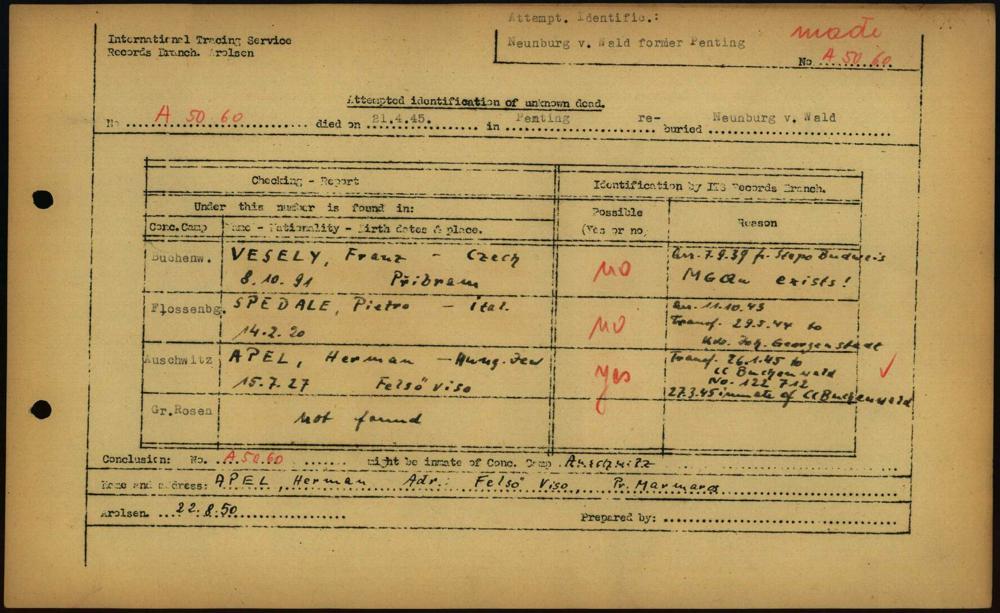 Attempt. Identific.:
Neunburg v. Wald former Penting
made
No A 50 60
International Tracing Service
Records Branch. Arolsen
Attempted identification of unknown dead.
No A 50 60 died on 21.4.45. in Penting re-buried Neunburg v. Wald
Checking - Report
Identification by ITS Records Branch.
Under this number is found in:
Possible (Yes or no)
Reason
Conc. Camp
Name - Nationality - Birth dates & place.
Buchenw.
VESELY, Franz - Czech
8.10.91 Přibram
no
arr. 7.9.39 fr. Stapo Budweis
exists!
Flossenbg.
SPEDALE, Pietro - ital.
14.2.20
no
arr. 11.10.43
Transf. 29.5.44 to
Kdo. Joh. Georgenstadt
Auschwitz
APEL, Herman - Hung. Jew
15.7.27 Felsö viso
yes
Transf. 26.1.45 to
CC Buchenwald
No. 122 712
27.3.45 inmate of CC Buchenwald
Gr. Rosen
not found
Conclusion: No. A 50 60 might be inmate of Conc. Camp Auschwitz
Name and address: APEL, Herman Adr: Felsö Viso, Pr.
Arolsen. 22.8.50
Prepared by: